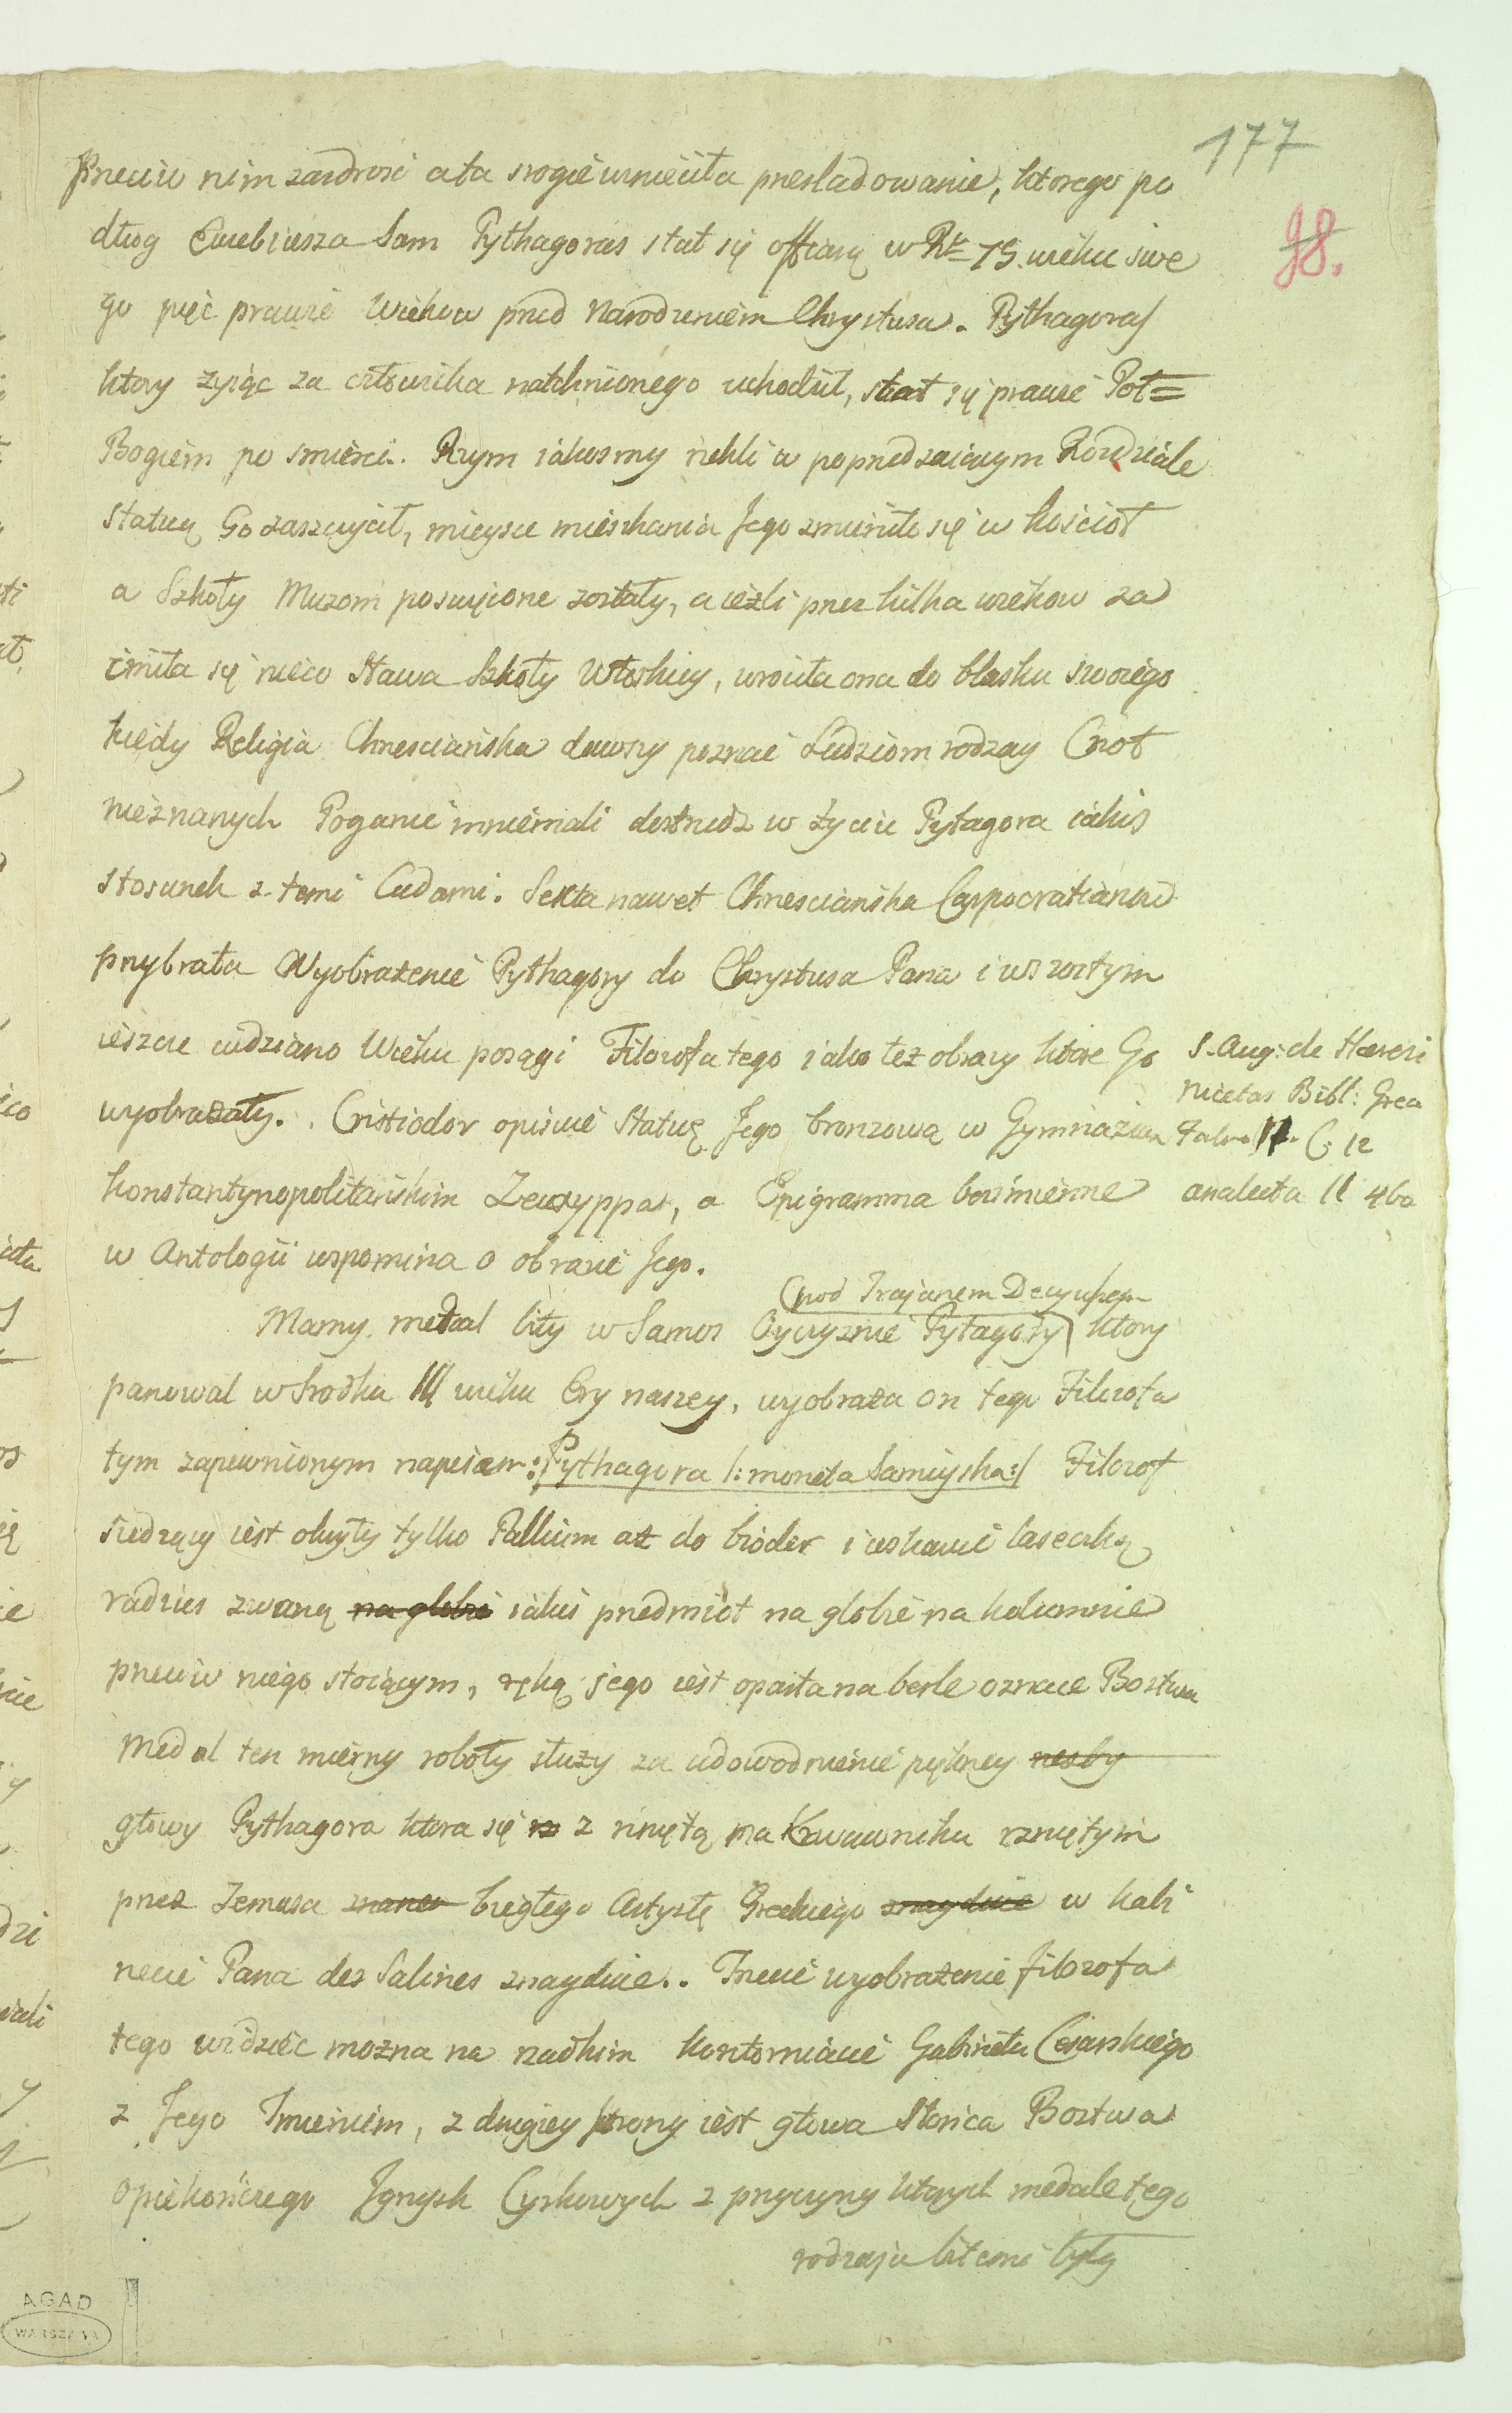 177
98.
Przeciw nim zazdrosć a ta srogie wznieciła przesladowanie, ktorego po
dług Euzebiusza Sam Pythagoras stał się offiarą w Rk= 75. wieku swe
go pięć prawie Wiekow przed Narodzeniem Chrystusa. Pythagoras
ktory zyiąc za człowieka natchnionego uchodził, stał się prawie Poł=
Bogiem po smierci. Rzym iakosmy rzekli w poprzedzaiącym Rozdziale
Statuą Go zaszczycił, mieysce mieszkania Jego zmieniło się w kościoł
a Szkoły Muzom poswięcone zostały, a ieżli przez kilka wiekow za
cmiła się nieco Sława Szkoły Włoskiey, wrociła ona do blasku swoiego
kiedy Religia Chrzesciańska dawszy poznać Ludziom rodzay Cnot
nieznanych Poganie mniemali dostrzedz w życiu Pytagora iakis
stosunek z temi Cudami. Sekta nawet Chrzesciańska Carpocratianow
przybrała Wyobrażenie Pythagory do Chrystusa Pana i w szostym
ieszcze widziano Wieku posągi Filozofa tego iako też obrazy ktore Go
wyobrażały. Cristiodor opisuie Statuę Jego bronzową w Gymnazium
konstantynopolitańskim Zeuxyppas, a Epigramma bezimienne
w Antologii wspomina o obrazie Jego.
S. Aug: de Haeresi
Nicetas Bibl: Grea
Fabr. C. 12
analecta II 460
(pod Trajanem Decyuszem
Mamy medal bity w Samos Oyczyznie Pytagory) ktory
panował w Srodku III wieku Ery naszey, wyobraża on tego Filozofa
tym zapewnionym napisem: Pythagora /: moneta Samiyska:/ Filozof
siedzący iest okryty tylko Pallium aż do bioder i wskazuie laseczką
radius zwaną na globie iakis przedmiot na globie na kolumnie
przeciw niego stoiącym, ręką jego iest oparta na berle oznace Bostwa
Medal ten mierny roboty służy za udowodnienie piękney
głowy Pythagora ktora się z rzniętą na Krwawniku rzniętym
przez biegłego Artystę Greckiego znayduie w kabi
necie Pana des Salines znayduie.. Trzecie wyobrażenie filozofa
tego widzieć można na rzadkim kontorniacie Gabinetu Cesarskiego
z Jego Imieniem, z drugiey strony iest głowa Słońca Bostwa
opiekończego Igrzysk Cyrkowych z przyczyny ktorych medale tego
rodzaju bitemi były
AGAD
WARSZAWA